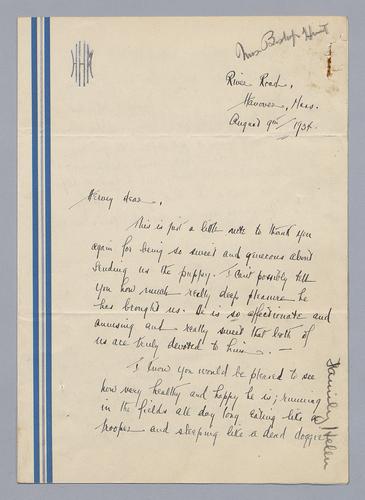 HHK
Mrs Bishop Hunt
River Road,
Hanover, Mass.
August 9th 1934.
Henry dear,
This is just a little note to thank you
again for being so sweet and generous about
sending us the puppy. I can't possibly tell
you how much really deep pleasure he
has brought us. He is so affectionate and
amusing and really sweet that both of
us are truly devoted to him. —
I know you would be pleased to see
how very healthy and happy he is; running
in the fields all day long eating like a
trooper and sleeping like a dead doggie
Helen